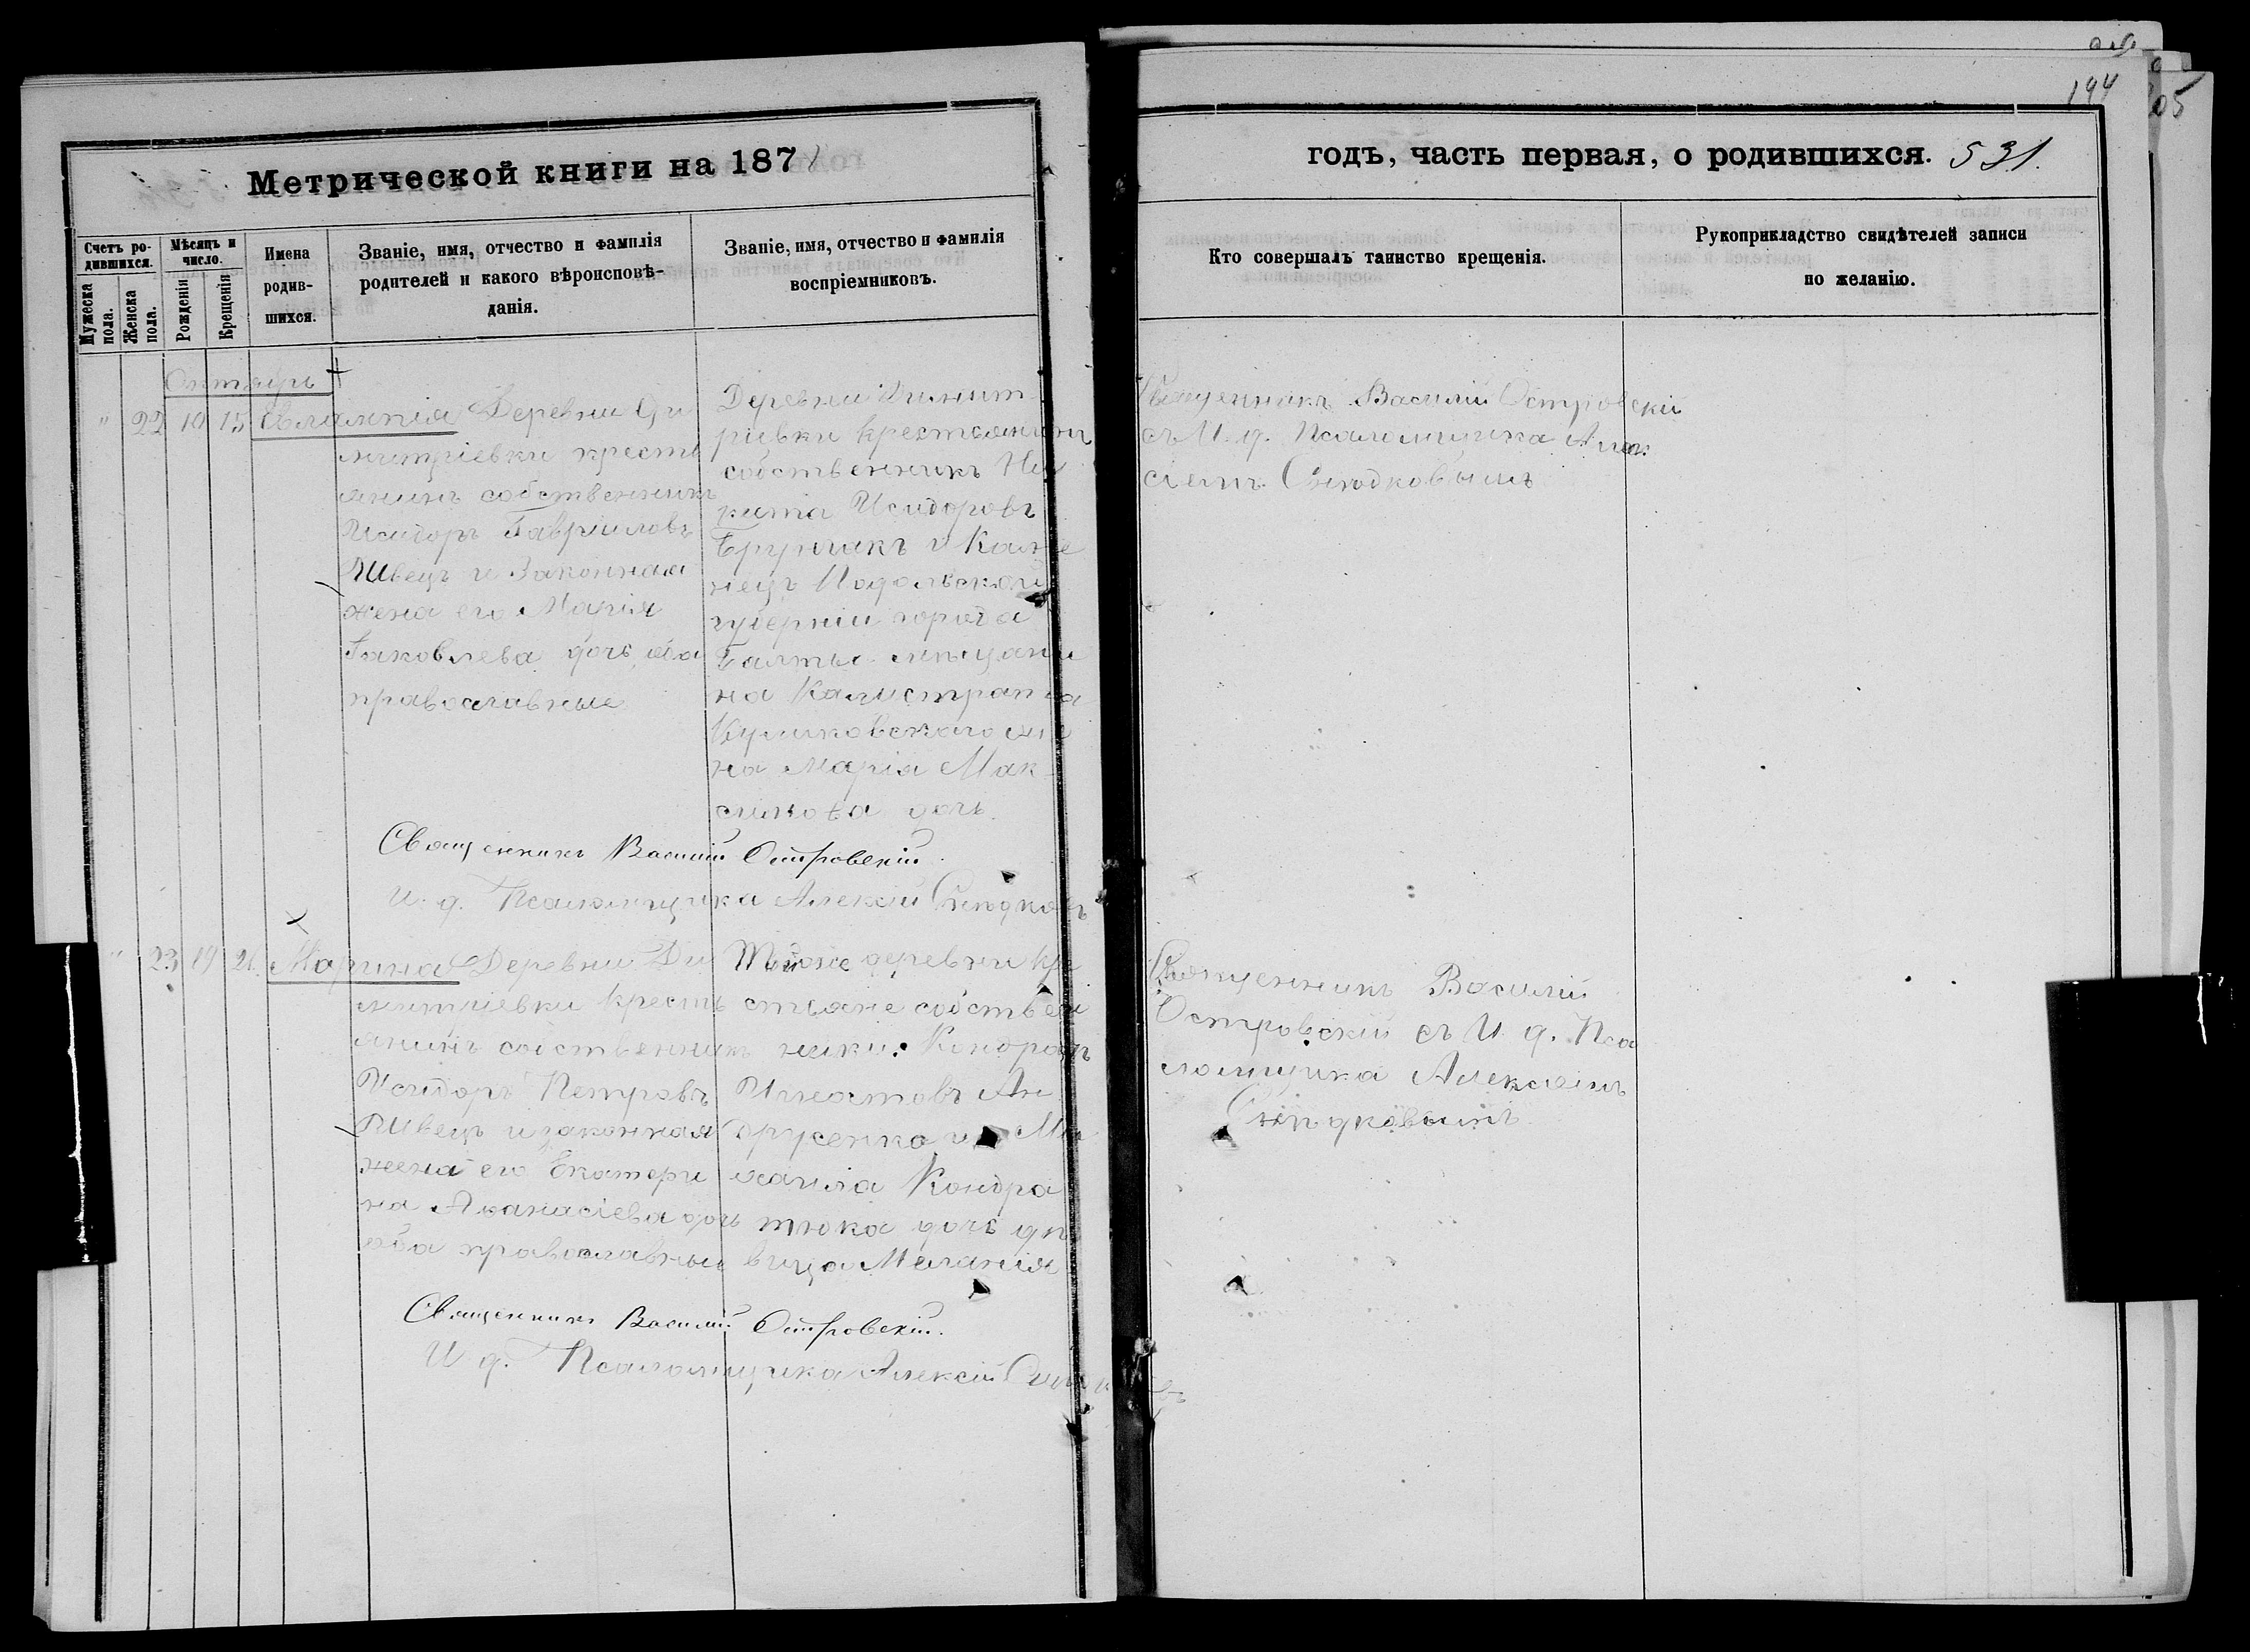 194
205
Метрической книги на 1871
годъ, часть первая, о родившихся. 531.
Счетъ родившихся.
Мужеска пола.
Женска пола.
Мѣсяцъ и число.
Рожденія
Крещенія
Имена родившихся.
Званіе, имя, отчество и фамилія
родителей и какого вѣроисповѣ-
данія.
Званіе, имя, отчество и фамилія
воспріемниковъ.
Кто совершалъ таинство крещенія.
Рукоприкладство свидѣтелей записи
по желанію.
Октябрь
" 22 10 15 Евлампія
Деревни Ди
митріевки кресть
янинъ собственникъ
Исидоръ Гавріиловъ
Швецъ и Законная
жена его Марія
Іаковлева дочь, оба
православные
Деревни Димит
ріевки крестьянинъ
собственникъ Ни
кита Исидоровъ
и Каме
нецъ Подольской
губерніи города
Балты мѣщани
на Калистрата
Куликовскаго же
на Марія Мак
симова дочь.
Священникъ Василій Островскій
съ И. д. Псаломщика Алек
сіемъ
Священникъ Василій Островскій.
И. д. Псаломщика Алексій
" 23 19 21 Марина
Деревни Ди
митріевки кресть
янинъ собственникъ
Исидоръ Петровъ
Швецъ и законная
жена его Екатери
на Аѳанасіева дочь
оба православные
Тойже деревни кре
стьяне собствен
ники: Кондратъ
Игнатовъ Ан
друсенко и Ми
хаила Кондра
тюка дочь дѣ
вица Меланія
Священникъ Василій
Островскій съ И. д. Пса
ломщика Алексіемъ
Священникъ Василій Островскій.
И д. Псаломщика Алексій